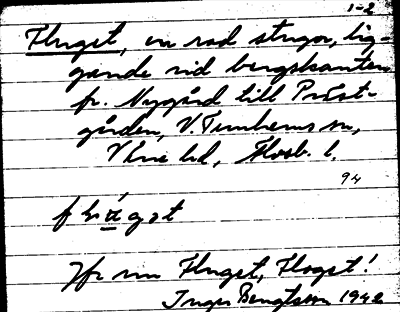 1-2
Fluget, en rad stugor, lig-
gande vid bergskanten
fr. Nygård till Präst-
gården, V. Tunhems sn,
Väne hd, Älvsb. l.
94
Jfr nu Fluget, Floget!
Inger Bengtsson 1942